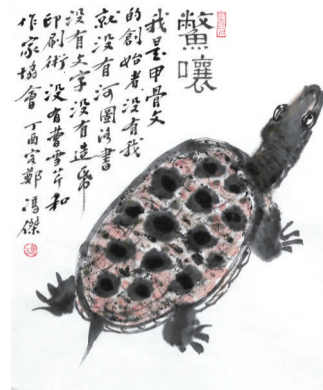 鱉嚷
我是甲骨文
的創始者沒有我
就沒有河圖洛書
沒有文字沒有造紙
印刷術没有曹雪芹和
作家協會 丁酉客鄭 馮傑